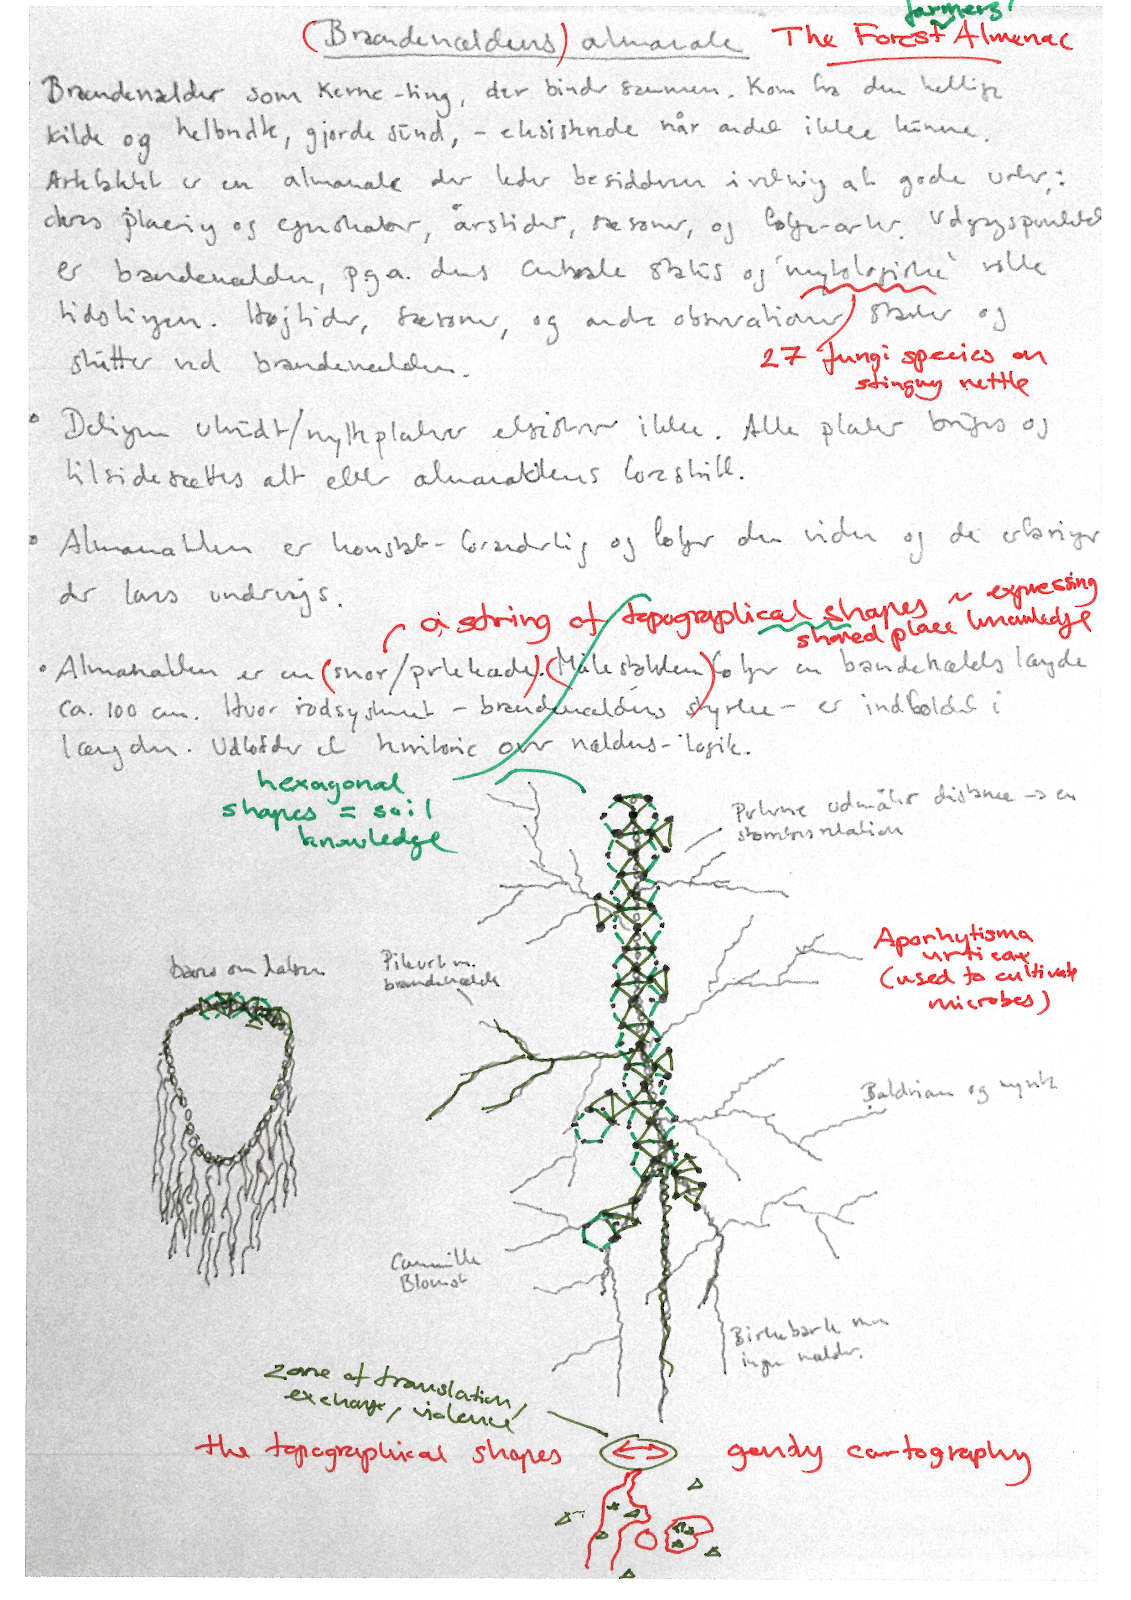 farmers'
(Brændenældens) almanak The Forest Almanac
Brændenælder som kerne-ting, der binder sammen. Kom fra den hellige
kilde og helbredte, gjorde sund, - eksisterede når andet ikke kunne.
er en almanak der leder besidderen i retning af gode urter:
deres placering og egenskaber, årstider, sæsoner, og følge-arter. Udgangspunktet
er brændenælden, pga. dens centrale status og 'mytologiske' rolle
Højtider, sæsoner, og andre observationer starter og
slutter ved brændenælden.
27 fungi species on
stinging nettle
• ukrudt/nytteplanter eksisterer ikke. Alle planter bruges og
tilsidesættes alt efter almanakkens forskrift.
• Almanakken er konstant foranderlig og følger den viden og de erfaringer
der laves undervejs.
a string of topographical shapes ~ expressing
shared place knowledge
• Almanakken er en (snor/perlekæde). (Målestokken) følger en brændenældes længde
ca. 100 cm. Hvor rodsystemet - brændenældens styrke - er indfoldet i
længden. Udfolder et territorie over nældens-logik.
hexagonal
shapes = soil
knowledge
Perlerne udmåler distance → en
Aporhytisma
urticae
(used to cultivate
microbes)
bæres om halsen
Pileurt m.
brændenælde
Baldrian og
Camille
Blomst
Birkebark
ingen nælder.
zone of translation,
exchange, violence
the topographical shapes ↔ gendy cartography